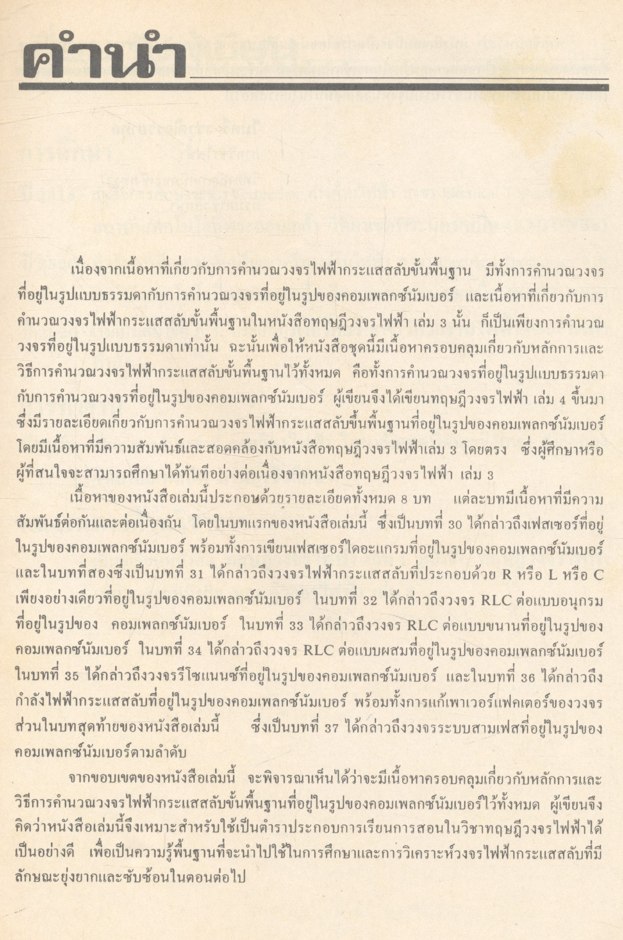 คำนำ
เนื่องจากเนื้อหาที่เกี่ยวกับการคำนวณวงจรไฟฟ้ากระแสสลับขั้นพื้นฐาน มีทั้งการคำนวณวงจร
ที่อยู่ในรูปแบบธรรมดากับการคำนวณวงจรที่อยู่ในรูปของคอมเพลกซ์นัมเบอร์ และเนื้อหาที่เกี่ยวกับการ
คำนวณวงจรไฟฟ้ากระแสสลับขั้นพื้นฐานในหนังสือทฤษฎีวงจรไฟฟ้า เล่ม 3 นั้น ก็เป็นเพียงการคำนวณ
วงจรที่อยู่ในรูปแบบธรรมดาเท่านั้น ฉะนั้นเพื่อให้หนังสือชุดนี้มีเนื้อหาครอบคลุมเกี่ยวกับหลักการและ
วิธีการคำนวณวงจรไฟฟ้ากระแสสลับขั้นพื้นฐานไว้ทั้งหมด คือทั้งการคำนวณวงจรที่อยู่ในรูปแบบธรรมดา
กับการคำนวณวงจรที่อยู่ในรูปของคอมเพลกซ์นัมเบอร์ ผู้เขียนจึงได้เขียนทฤษฎีวงจรไฟฟ้า เล่ม 4 ขึ้นมา
ซึ่งมีรายละเอียดเกี่ยวกับการคำนวณวงจรไฟฟ้ากระแสสลับขึ้นพื้นฐานที่อยู่ในรูปของคอมเพลกซ์นัมเบอร์
โดยมีเนื้อหาที่มีความสัมพันธ์และสอดคล้องกับหนังสือทฤษฎีวงจรไฟฟ้าเล่ม 3 โดยตรง ซึ่งผู้ศึกษาหรือ
ผู้ที่สนใจจะสามารถศึกษาได้ทันทีอย่างต่อเนื่องจากหนังสือทฤษฎีวงจรไฟฟ้า เล่ม 3
เนื้อหาของหนังสือเล่มนี้ประกอบด้วยรายละเอียดทั้งหมด 8 บท แต่ละบทมีเนื้อหาที่มีความ
สัมพันธ์ต่อกันและต่อเนื่องกัน โดยในบทแรกของหนังสือเล่มนี้ ซึ่งเป็นบทที่ 30 ได้กล่าวถึงเฟสเซอร์ที่อยู่
ในรูปของคอมเพลกซ์นัมเบอร์ พร้อมทั้งการเขียนเฟสเซอร์ไดอะแกรมที่อยู่ในรูปของคอมเพลกซ์นัมเบอร์
และในบทที่สองซึ่งเป็นบทที่ 31 ได้กล่าวถึงวงจรไฟฟ้ากระแสสลับที่ประกอบด้วย R หรือ L หรือ C
เพียงอย่างเดียวที่อยู่ในรูปของคอมเพลกซ์นัมเบอร์ ในบทที่ 32 ได้กล่าวถึงวงจร RLC ต่อแบบอนุกรม
ที่อยู่ในรูปของ คอมเพลกซ์นัมเบอร์ ในบทที่ 33 ได้กล่าวถึงวงจร RLC ต่อแบบขนานที่อยู่ในรูปของ
คอมเพลกซ์นัมเบอร์ ในบทที่ 34 ได้กล่าวถึงวงจร RLC ต่อแบบผสมที่อยู่ในรูปของคอมเพลกซ์นัมเบอร์
ในบทที่ 35 ได้กล่าวถึงวงจรรีโซแนนซ์ที่อยู่ในรูปของคอมเพลกซ์นัมเบอร์ และในบทที่ 36 ได้กล่าวถึง
กำลังไฟฟ้ากระแสสลับที่อยู่ในรูปของคอมเพลกซ์นัมเบอร์ พร้อมทั้งการแก้เพาเวอร์แฟคเตอร์ของวงจร
ส่วนในบทสุดท้ายของหนังสือเล่มนี้ ซึ่งเป็นบทที่ 37 ได้กล่าวถึงวงจรระบบสามเฟสที่อยู่ในรูปของ
คอมเพลกซ์นัมเบอร์ตามลำดับ
จากขอบเขตของหนังสือเล่มนี้ จะพิจารณาเห็นได้ว่าจะมีเนื้อหาครอบคลุมเกี่ยวกับหลักการและ
วิธีการคำนวณวงจรไฟฟ้ากระแสสลับขั้นพื้นฐานที่อยู่ในรูปของคอมเพลกซ์นัมเบอร์ไว้ทั้งหมด ผู้เขียนจึง
คิดว่าหนังสือเล่มนี้จึงเหมาะสำหรับใช้เป็นตำราประกอบการเรียนการสอนในวิชาทฤษฎีวงจรไฟฟ้าได้
เป็นอย่างดี เพื่อเป็นความรู้พื้นฐานที่จะนำไปใช้ในการศึกษาและการวิเคราะห์วงจรไฟฟ้ากระแสสลับที่มี
ลักษณะยุ่งยากและซับซ้อนในตอนต่อไป